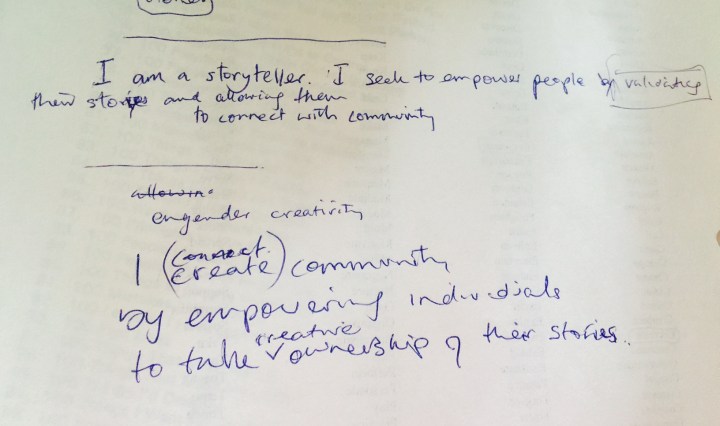 I am a storyteller. I seek to empower people by validating
their stories and allowing them
to connect with community
engender creativity
I (connect
create) community
by empowering individuals
creative
to take ownership of their stories.